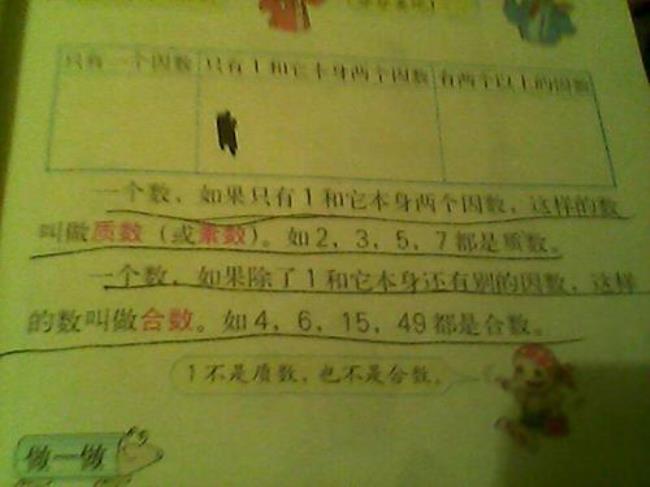 只有一个因数 只有1和它本身两个因数 有两个以上的因数
一个数，如果只有1和它本身两个因数，这样的数
叫做质数（或素数）。如2，3，5，7都是质数。
一个数，如果除了1和它本身还有别的因数，这样
的数叫做合数。如4，6，15，49都是合数。
1不是质数，也不是合数。
做一做